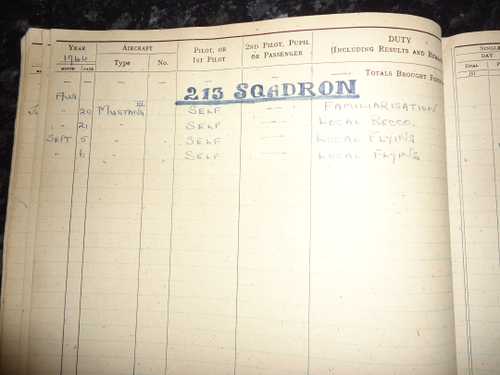 YEAR AIRCRAFT PILOT, OR 2ND PILOT, PUPIL DUTY
1944 1ST PILOT OR PASSENGER (INCLUDING RESULTS AND
MONTH DATE Type No.
TOTALS BROUGHT
AUG 213 SQADRON
" 20 MUSTANG III SELF — FAMILIARISATION
" 21 " " SELF — LOCAL RECCO.
SEPT 5 " " SELF — LOCAL FLYING
" 6 " " SELF — LOCAL FLYING
SINGLE
DAY
DUAL
(1)